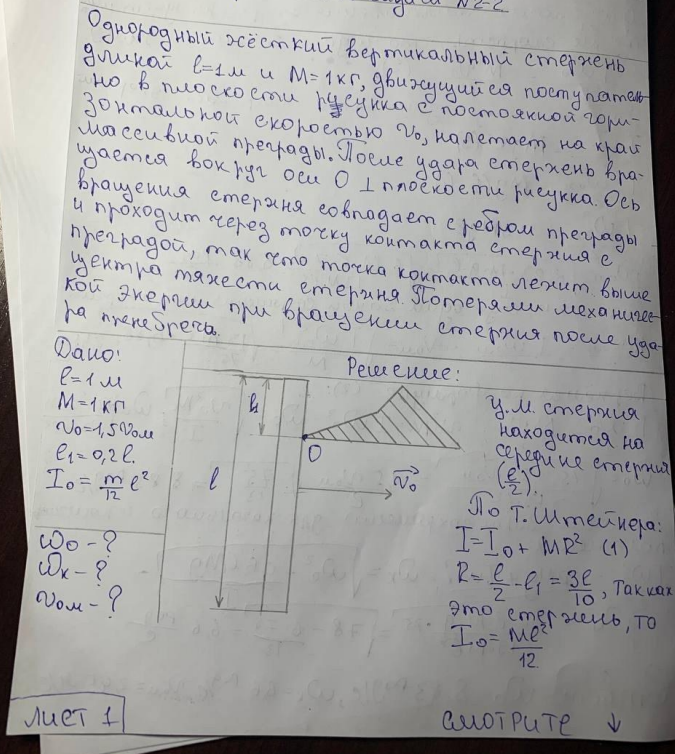 №2-2
Однородный жёсткий вертикальный стержень
длиной l=1м и M=1кг, движущийся поступатель-
но в плоскости рисунка с постоянной гори-
зонтальной скоростью v₀, налетает на край
массивной преграды. После удара стержень вра-
щается вокруг оси O ⊥ плоскости рисунка. Ось
вращения стержня совпадает с ребром преграды
и проходит через точку контакта стержня с
преградой, так что точка контакта лежит выше
центра тяжести стержня. Потерями механичес-
кой энергии при вращении стержня после уда-
ра пренебречь.
Дано:
l=1м
M=1кг
v₀=1,5v₀м
l₁=0,2l.
I₀=m/12 l²
ω₀-?
ωк-?
v₀м-?
Решение:
l₁
l
O
v₀
Ц.М. стержня
находится на
середине стержня
(l/2).
По т. Штейнера:
I=I₀+MR² (1)
R=l/2-l₁=3l/10, так как
это стержень, то
I₀=Ml²/12
ЛИСТ 1
СМОТРИТЕ ↓